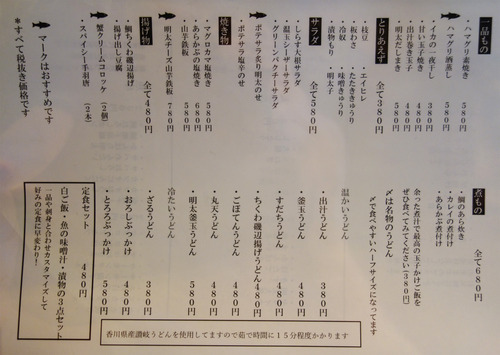 一品もの
・ハマグリ素焼き 580円
・ハマグリ酒蒸し 580円
・イカの一夜干し 380円
・甘い玉子焼き 480円
・出汁巻き玉子 480円
・明太だしまき 580円
とりあえず 全て380円
・枝豆 ・エイヒレ
・板わさ ・たたききゅうり
・冷奴 ・味噌きゅうり
・漬物もり ・明太子
サラダ 全て580円
・しらす大根サラダ
・温玉シーザーサラダ
・グリーンパクチーサラダ
・ポテサラ炙り明太のせ
・ポテサラ塩辛のせ
焼き物
・マグロカマ塩焼き 580円
・あらかぶの塩焼き 680円
・山芋鉄板 580円
・明太チーズ山芋鉄板 780円
揚げ物 全て480円
・揚げ出し豆腐
・蟹クリームコロッケ (2個)
・スパイシー手羽唐 (2本)
マークはおすすめです
*すべて税抜き価格です
煮もの 全て680円
・鯛のあら炊き
・カレイの煮付け
・あらかぶ煮付け
余った煮汁で最高の玉子かけご飯を
ぜひ食べてみてください(380円)
〆は名物のうどん
〆で食べやすいハーフサイズになってます
温かいうどん
・出汁うどん 380円
・釜玉うどん 480円
・すだちうどん 480円
・ちくわ磯辺揚げうどん 480円
・ごぼてんうどん 480円
・丸天うどん 480円
・明太釜玉うどん 580円
冷たいうどん
・ざるうどん 380円
・おろしぶっかけ 480円
・とろろぶっかけ 580円
定食セット 480円
白ご飯・魚の味噌汁・漬物の3点セット
一品や刺身と合わせカスタマイズして
好みの定食に早変わり!
香川県産讃岐うどんを使用してますので茹で時間に15分程度かかります